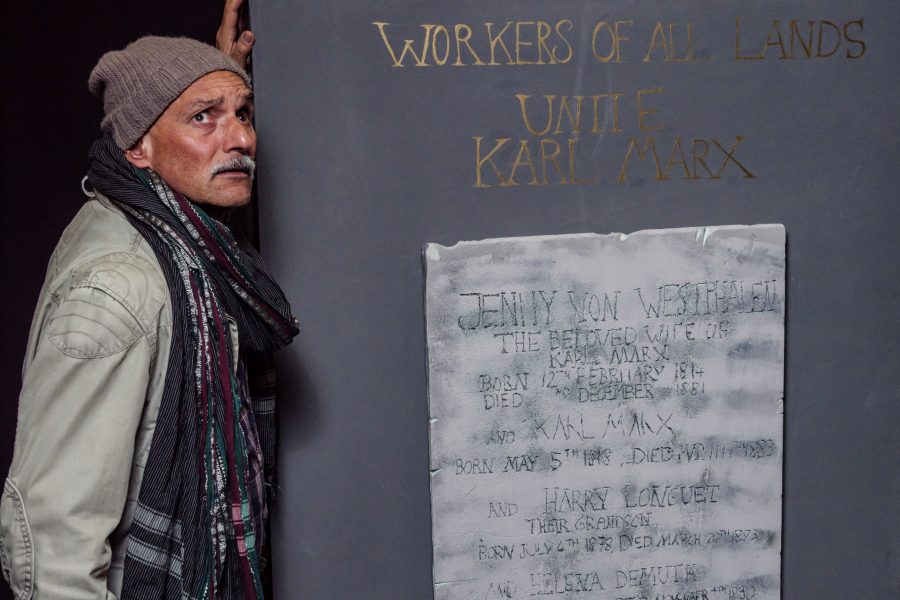 WORKERS OF ALL LANDS
UNITE
KARL MARX
JENNY VON WESTPHALEN
THE BELOVED WIFE OF
KARL MARX
BORN 12TH FEBRUARY 1814
DIED DECEMBER 1881
AND KARL MARX
BORN MAY 5TH 1818, DIED
AND HARRY LONGUET
THEIR GRANDSON
BORN JULY 4TH 1878, DIED MARCH 20TH 1883
AND HELENA DEMUTH